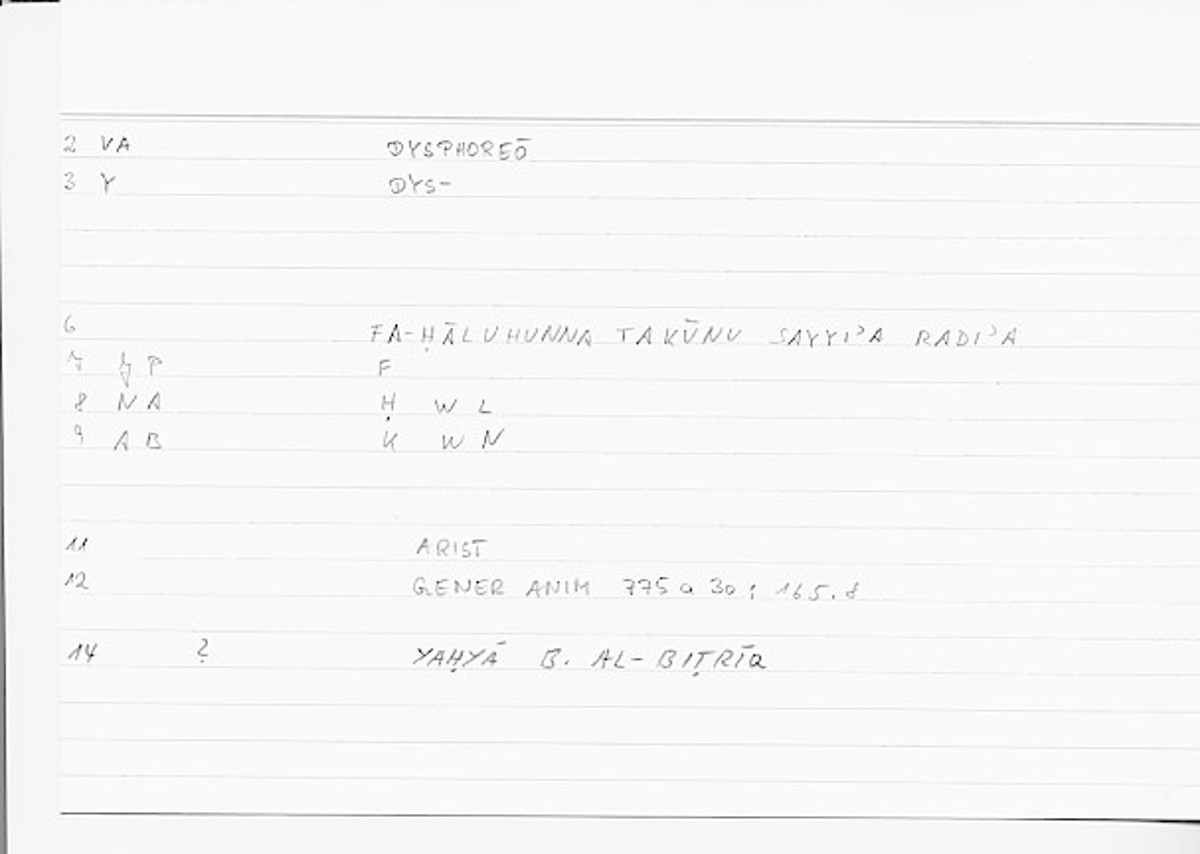 2 VA DYSPHOREŌ
3 Y DYS-
6 FA-ḤĀLUHUNNA TAKŪNU SAYYIʾA RADIʾA
7 P F
8 NA Ḥ W L
9 AB K W N
11 ARIST
12 GENER ANIM 775 a 30 ; 165.8
14 ? YAḤYĀ B. AL-BIṬRĪQ